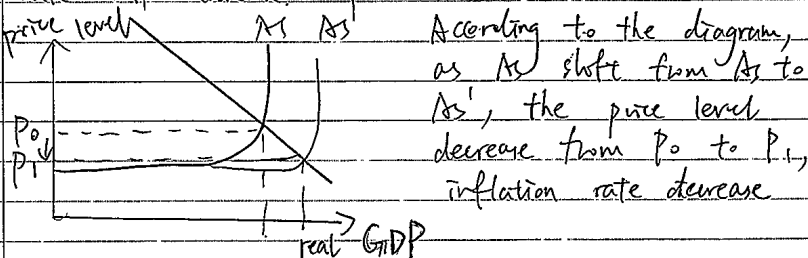 price level
AS AS'
According to the diagram,
as AS shift from AS to
AS', the price level
decrease from P0 to P1,
inflation rate decrease
P0
P1
real GDP